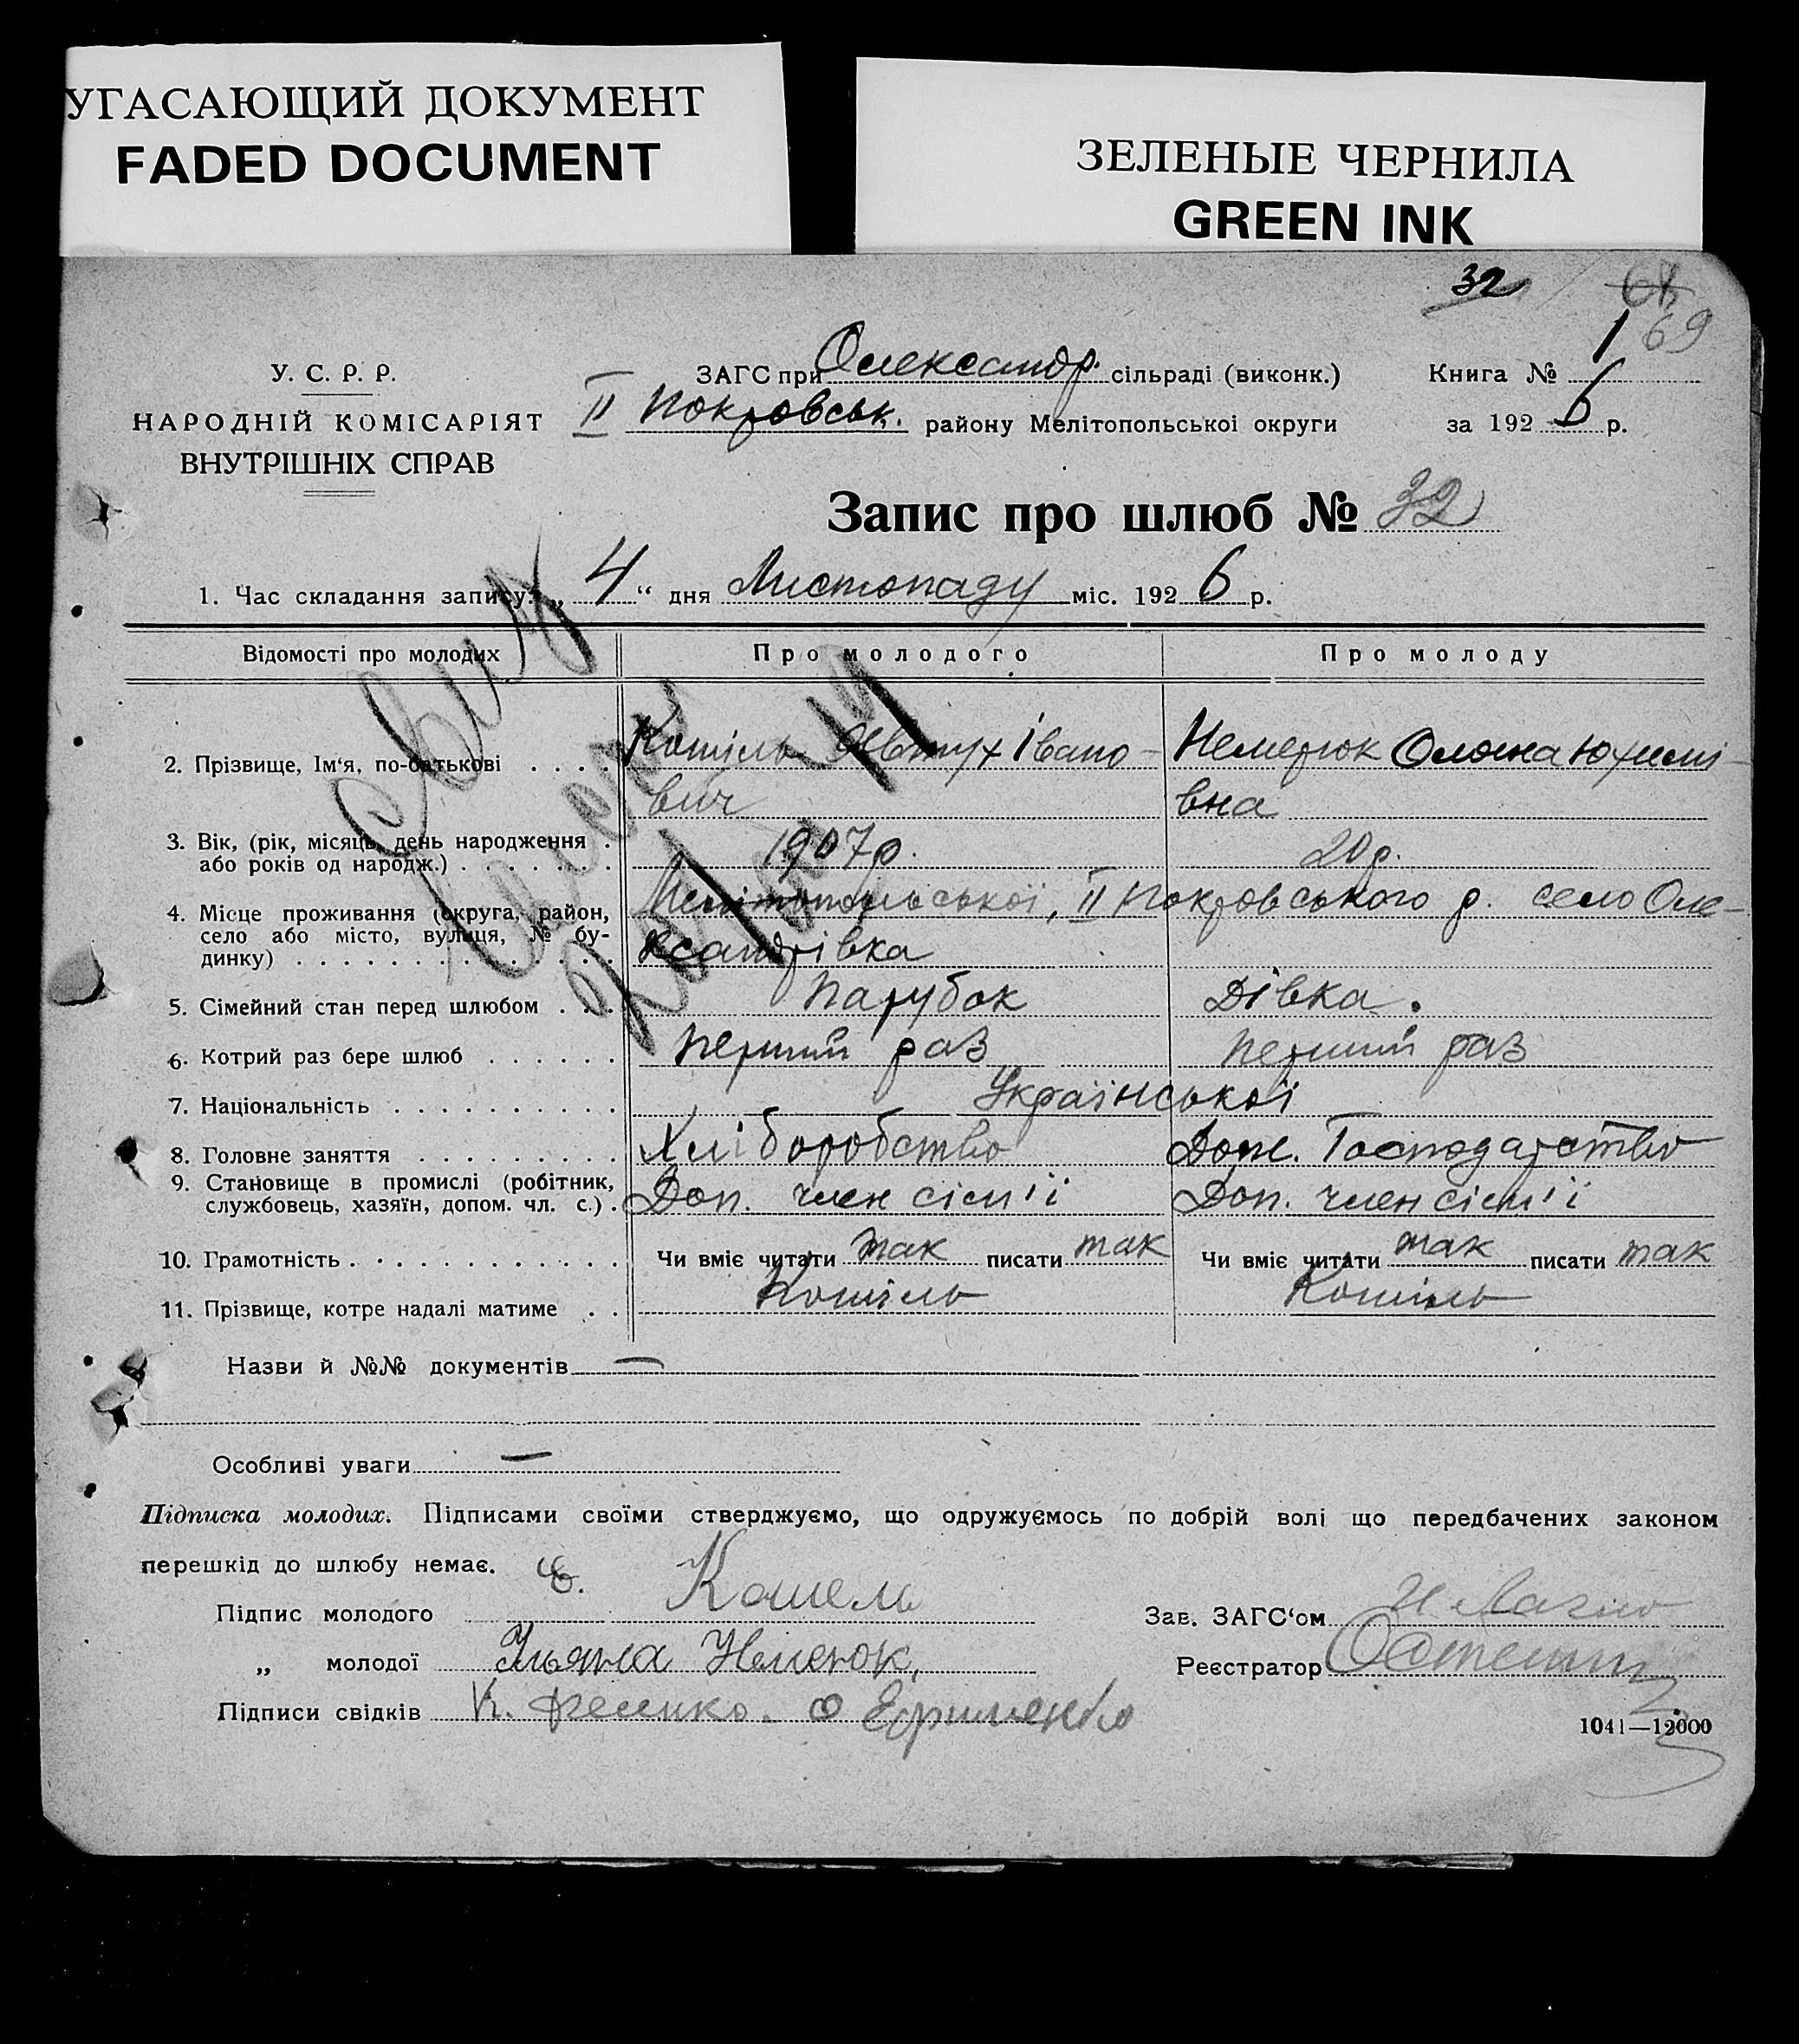 УГАСАЮЩИЙ ДОКУМЕНТ
FADED DOCUMENT
ЗЕЛЕНЫЕ ЧЕРНИЛА
GREEN INK
32 68
69
У. С. Р. Р.
НАРОДНІЙ КОМІСАРІЯТ
ВНУТРІШНІХ СПРАВ
ЗАГС при Олександр. сільраді (виконк.)
II Покровськ. району Мелітопольської округи
Книга № 1
за 1926 р.
Запис про шлюб № 32
1. Час складання запису „4“ дня Листопаду міс. 1926 р.
Відомості про молодих Про молодого Про молоду
2. Прізвище, Ім‘я, по-батькові . . . . Кошіль Явтух Івано- Немерюк Оляна Юхимі-
вич вна
3. Вік, (рік, місяць, день народження . 1907 р. 20 р.
або років од народж.) . . . . . . .
4. Місце проживання (округа, район, Мелітопольської, II Покровського р. село Оле-
село або місто, вулиця, № бу- ксандрівка
динку) . . . . . . . . . . . . . .
5. Сімейний стан перед шлюбом . . . Парубок Дівка.
6. Котрий раз бере шлюб . . . . . . перший раз перший раз
7. Національність . . . . . . . . . . Української
8. Головне заняття . . . . . . . . . Хліборобство Дом. Господарство
9. Становище в промислі (робітник, Доп. член сім'ї Доп. член сім'ї
службовець, хазяїн, допом. чл. с.) .
10. Грамотність . . . . . . . . . . . . Чи вміє читати так писати так Чи вміє читати так писати так
11. Прізвище, котре надалі матиме . . Кошіль Кошіль
Назви й №№ документів —
Особливі уваги —
Підписка молодих. Підписами своїми стверджуємо, що одружуємось по добрій волі що передбачених законом
перешкід до шлюбу немає.
Підпис молодого Кошель
„ молодої Ульяна
Підписи свідків Ефименко
Зав. ЗАГС‘ом
Реєстратор
1041—12000